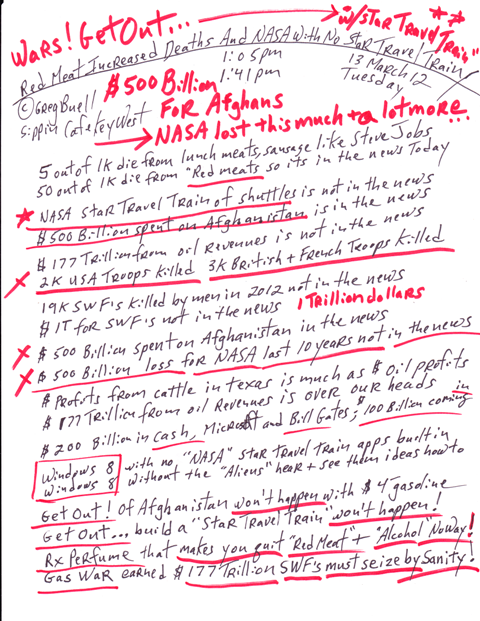 Wars! Get Out... w/Star Travel "Train"
Red Meat Increased Deaths And NASA With No Star Travel Train
© Greg Buell $500 Billion 1:05pm 13 March 12
1:41pm Tuesday
Sippin Cafe Key West For Afghans
NASA lost this much + a lot more...
5 out of 1K die from lunch meats, sausage like Steve Jobs
50 out of 1K die from "Red meats so its in the news Today
NASA Star Travel Train of shuttles is not in the news
$500 Billion spent on Afghanistan is in the news
$177 Trillion from oil Revenues is not in the news
2K USA Troops killed 3K British + French Troops killed
19K SWF's killed by men in 2012 not in the news
$1T for SWF's not in the news 1 Trillion dollars
$500 Billion spent on Afghanistan in the news
$500 Billion loss for NASA last 10 years not in the news
$ Profits from cattle in Texas is much as $ oil profits
$177 Trillion from oil Revenues is over our heads in
$200 Billion in cash, Microsoft and Bill Gates; $100 Billion coming
Windows 8 with no "NASA" Star Travel Train apps built in
Windows 8 without the "Aliens" hear + see them ideas how to
Get Out! of Afghanistan won't happen with $4 gasoline
Get Out... build a "Star Travel Train" won't happen!
Rx Perfume that makes you quit "Red Meat" + "Alcohol" No Way!
Gas War earned $177 Trillion SWF's must seize by Sanity!